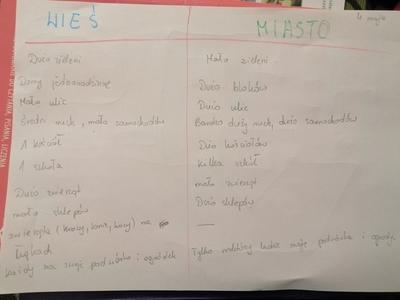 WIEŚ
MIASTO
4 maja
Dużo zieleni
Mało zieleni
Domy jednorodzinne
Dużo bloków
Mało ulic
Dużo ulic
Średni ruch, mało samochodów
Bardzo duży ruch, dużo samochodów
1 kościół
Dużo kościołów
1 szkoła
Kilka szkół
Dużo zwierząt
mało zwierząt
mało sklepów
Dużo sklepów
zwierzęta (krowy, konie, kury) na
łąkach
każdy ma swoje podwórko i ogródek
Tylko niektórzy ludzie mają podwórka i ogrody
DO CZYTANIA, PISANIA, LICZENIA